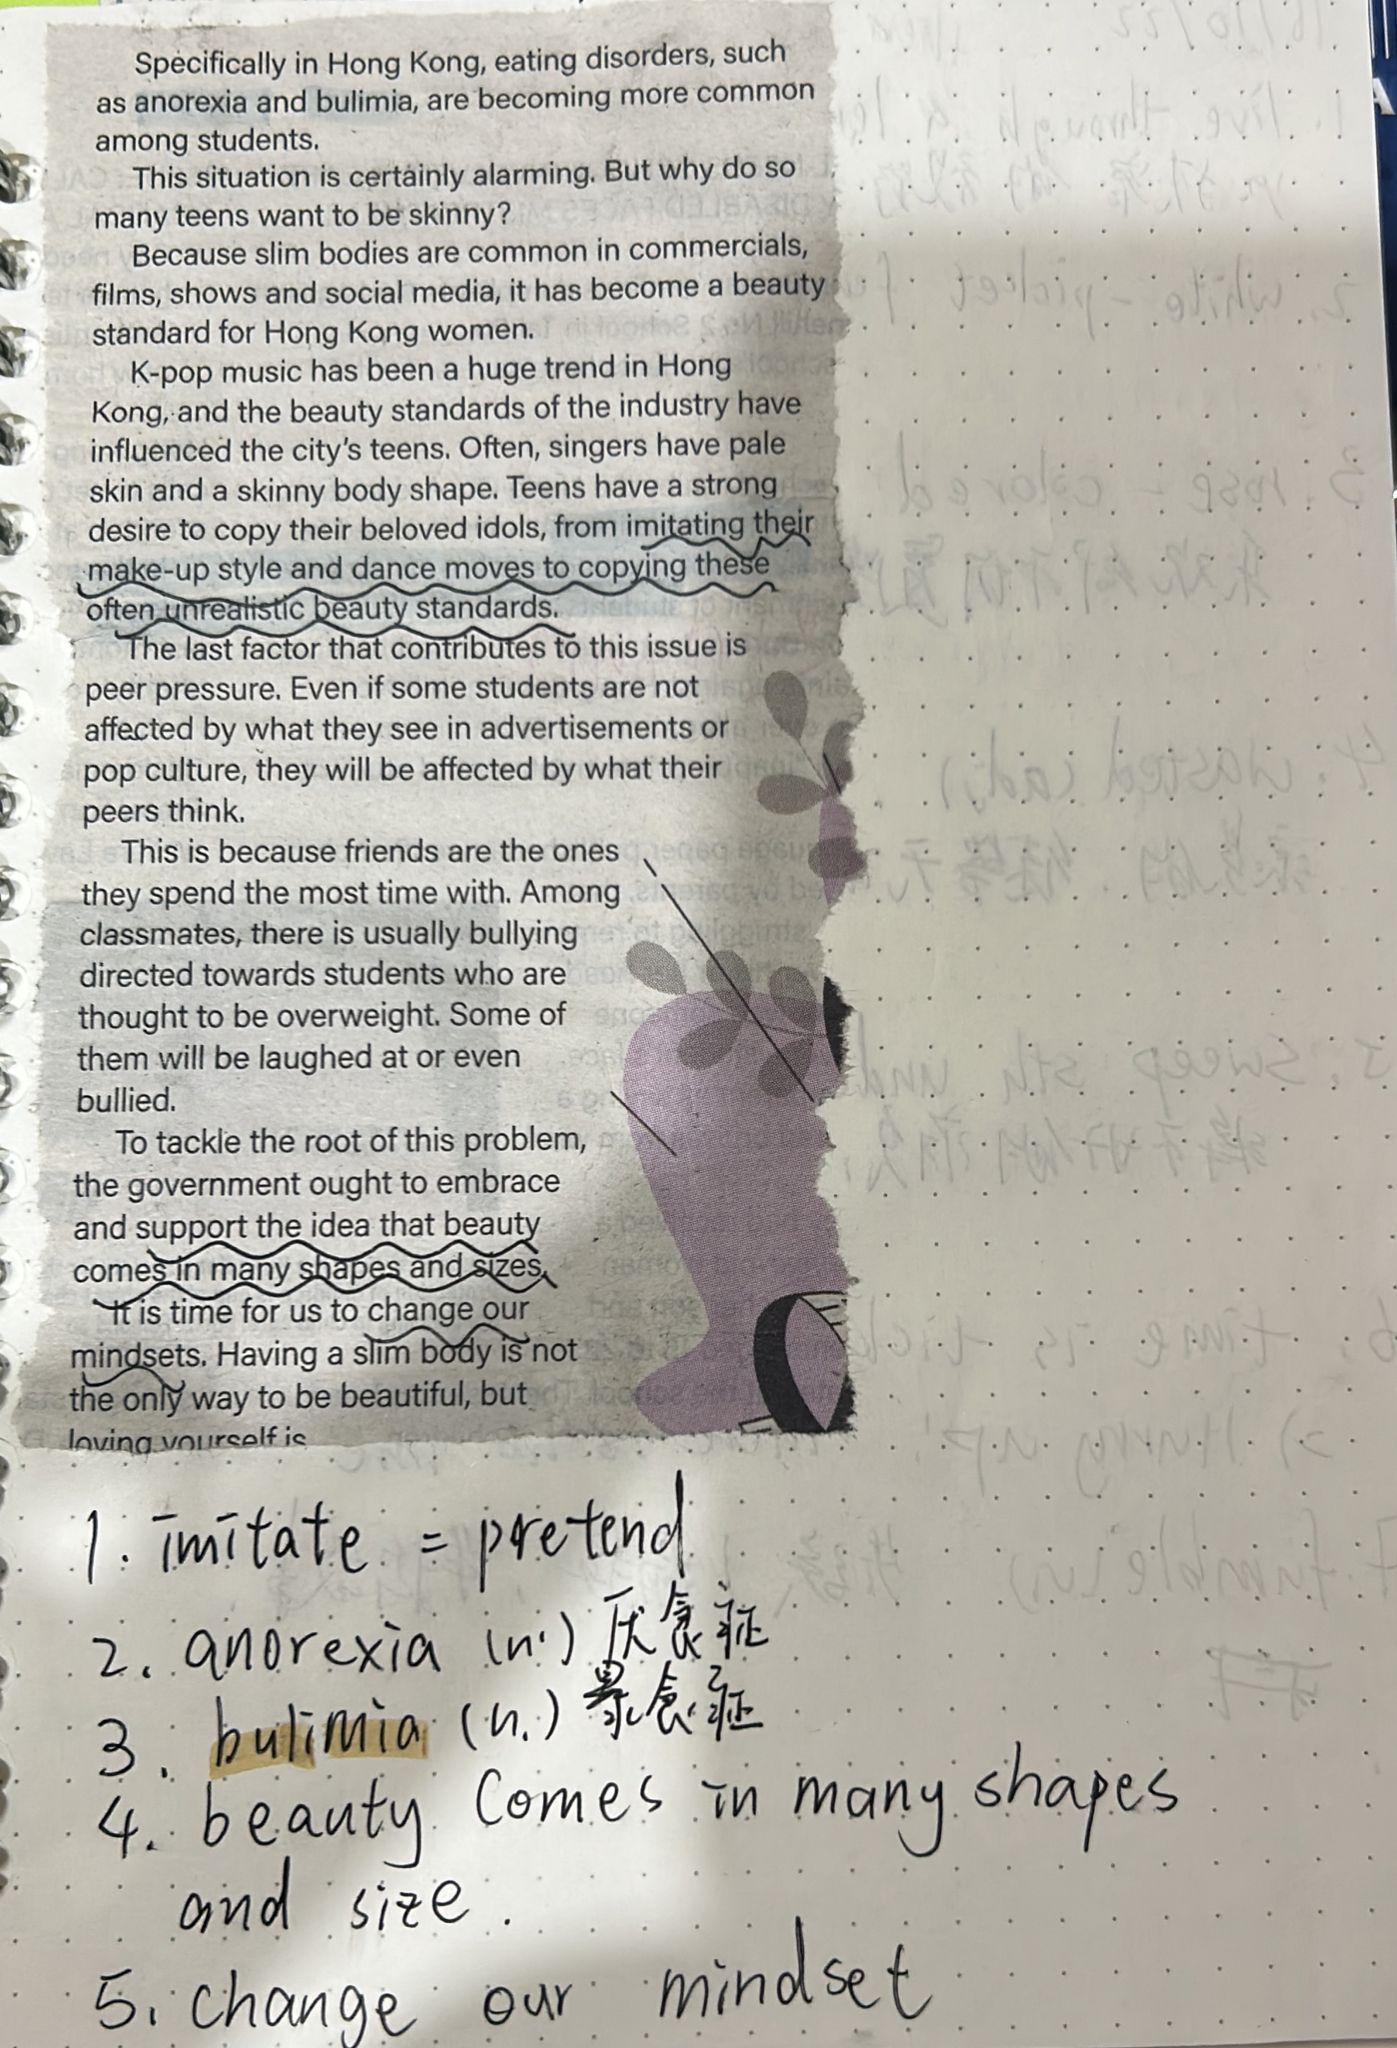 Specifically in Hong Kong, eating disorders, such
as anorexia and bulimia, are becoming more common
among students.
This situation is certainly alarming. But why do so
many teens want to be skinny?
Because slim bodies are common in commercials,
films, shows and social media, it has become a beauty
standard for Hong Kong women.
K-pop music has been a huge trend in Hong
Kong, and the beauty standards of the industry have
influenced the city's teens. Often, singers have pale
skin and a skinny body shape. Teens have a strong
desire to copy their beloved idols, from imitating their
make-up style and dance moves to copying these
often unrealistic beauty standards.
The last factor that contributes to this issue is
peer pressure. Even if some students are not
affected by what they see in advertisements or
pop culture, they will be affected by what their
peers think.
This is because friends are the ones
they spend the most time with. Among
classmates, there is usually bullying
directed towards students who are
thought to be overweight. Some of
them will be laughed at or even
bullied.
To tackle the root of this problem,
the government ought to embrace
and support the idea that beauty
comes in many shapes and sizes.
It is time for us to change our
mindsets. Having a slim body is not
the only way to be beautiful, but
loving yourself is
1. imitate = pretend
2. anorexia (n.) 厌食症
3. bulimia (n.) 暴食症
4. beauty comes in many shapes
and size.
5. change our mindset